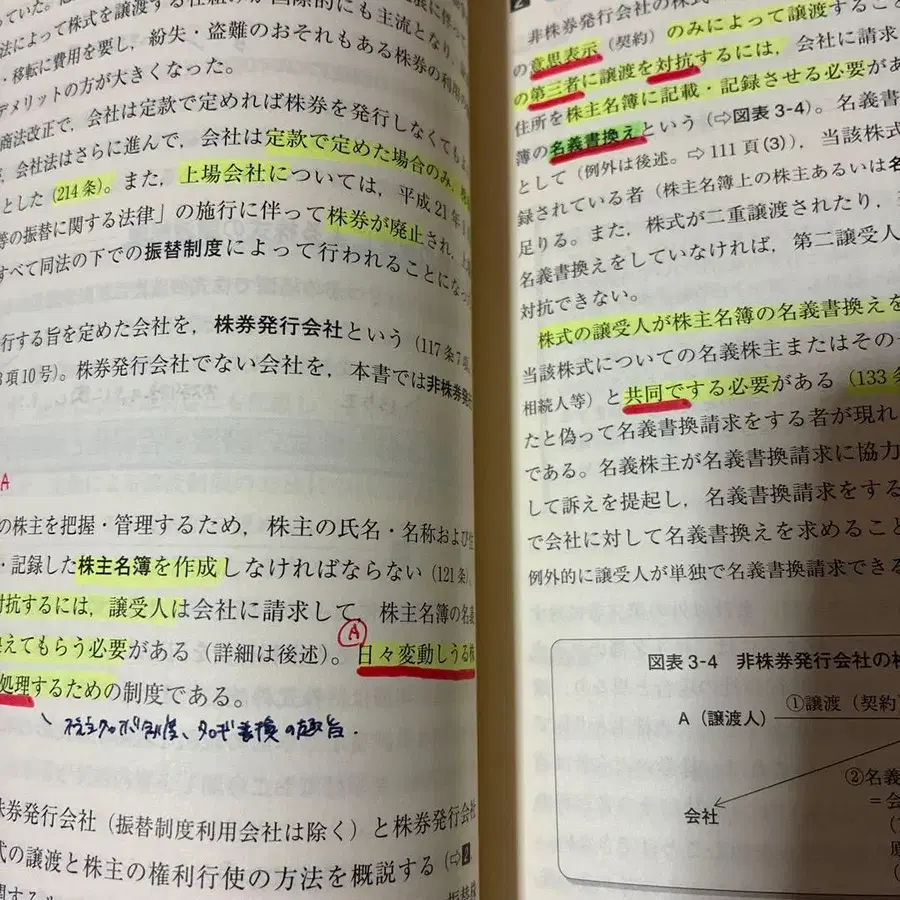 っていた。
法によって株式を譲渡する仕組みが国際的にも主流となり、
・移転に費用を要し，紛失・盗難のおそれもある株券の利用の
デメリットの方が大きくなった。
商法改正で，会社は定款で定めれば株券を発行しなくても
，会社法はさらに進んで，会社は定款で定めた場合のみ，
とした（214条）。また，上場会社については，平成21年
等の振替に関する法律」の施行に伴って株券が廃止され，
すべて同法の下での振替制度によって行われることになっ
行する旨を定めた会社を，株券発行会社という（117条7項，
項10号）。株券発行会社でない会社を，本書では非株券発
A
の株主を把握・管理するため，株主の氏名・名称および
・記録した株主名簿を作成しなければならない（121条）。
対抗するには，譲受人は会社に請求して，株主名簿の名義
換えてもらう必要がある（詳細は後述）。日々変動しうる株
A
処理するための制度である。
書換の趣旨．
株券発行会社（振替制度利用会社は除く）と株券発行会社
式の譲渡と株主の権利行使の方法を概説する（⇨2
2
非株券発行会社の株式
の意思表示（契約）のみによって譲渡すること
の第三者に譲渡を対抗するには，会社に請求
住所を株主名簿に記載・記録させる必要があ
簿の名義書換えという（⇨図表3-4）。名義書
として（例外は後述。⇨111頁(3)），当該株式
録されている者（株主名簿上の株主あるいは名
足りる。また，株式が二重譲渡されたり，
名義書換えをしていなければ，第二譲受人
対抗できない。
株式の譲受人が株主名簿の名義書換えを
当該株式についての名義株主またはその
相続人等）と共同でする必要がある（133条
たと偽って名義書換請求をする者が現れ
である。名義株主が名義書換請求に協力
して訴えを提起し，名義書換請求をする
で会社に対して名義書換えを求めること
例外的に譲受人が単独で名義書換請求できる
図表3-4 非株券発行会社の株
A（譲渡人）
①譲渡（契約）
②名義
＝会
会社